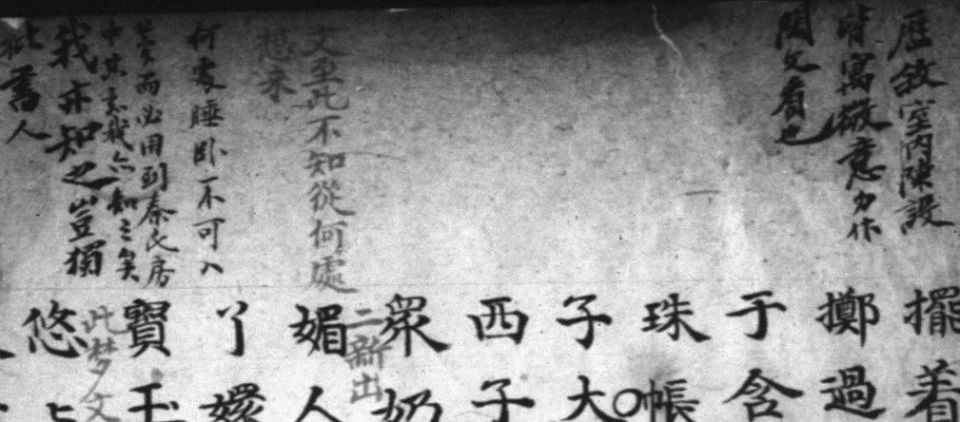 歷敘室內陳設
皆寓微意勿作
閑文看也
文至此不知從何處
想來
何處睡臥不可入
夢而必用到秦氏房
中其意我亦知之矣
我亦知之豈獨
批書人
擺着
擲過
于含
珠帳
子大
西子
眾奶
二新出
媚人
丫嬛
寶玉
此梦文
悠